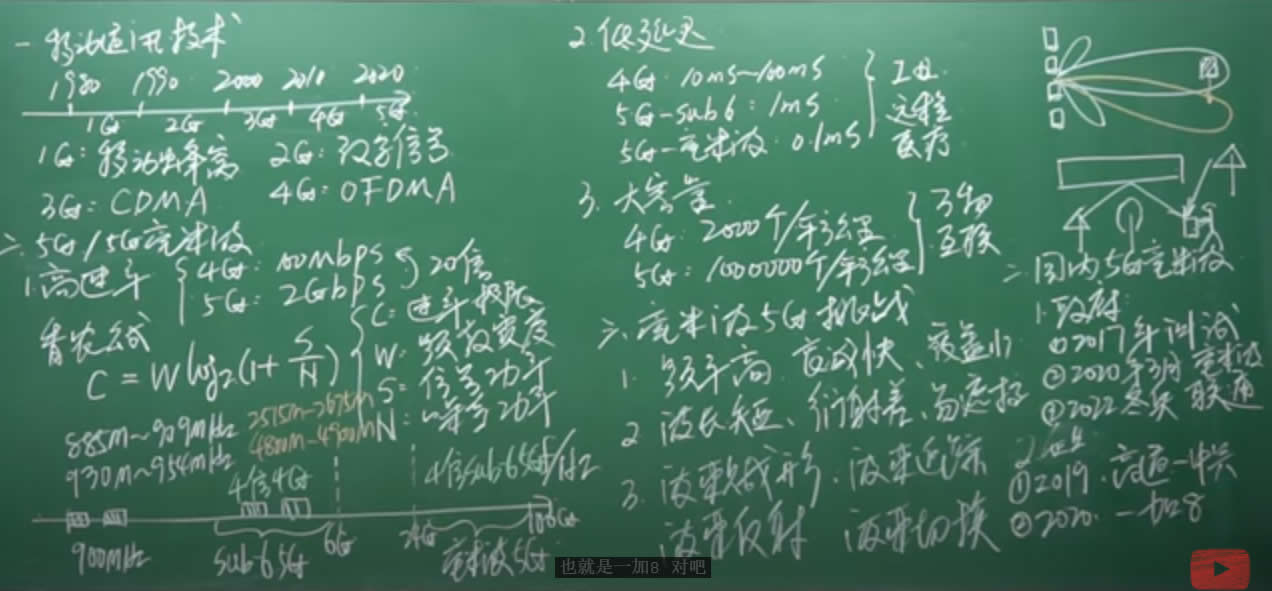 一 移动通讯技术
1980 1990 2000 2010 2020
1G 2G 3G 4G 5G
1G: 移动蜂窝 2G: 数字信号
3G: CDMA 4G: OFDMA
二、5G/5G毫米波
1.高速率
4G: 100Mbps
5G: 2Gbps
20倍
香农公式
C = W log₂(1 + S/N)
C: 速率极限
W: 频散宽度
S: 信号功率
N: 噪声功率
885M~909MHz
930M~954MHz
2515M~2675M
4800M~4900M
4倍4G
4倍sub6 5G
900MHz
sub6 5G
6G
24G
100G
毫米波5G
2.低延迟
4G: 10ms~100ms
5G-sub6: 1ms
5G-毫米波: 0.1ms
工业
远程
医疗
3.大容量
4G: 2000个/平方公里
5G: 1000000个/平方公里
万物
互联
毫米波5G挑战
1. 频率高 衰减快、覆盖小
2 波长短、衍射差、易遮挡
3. 波束赋形、波束追踪
波束反射 波束切换
国内5G毫米波
1.政府:
①2017年测试
②2020年3月 毫米波
2022冬奥 联通
①2019.高通-中兴
②2020.一加8
也就是一加8 对吧